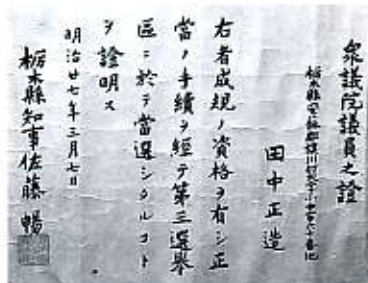 衆議院議員之證
栃木縣安蘇郡旗川村大字小中
田中正造
右者成規ノ資格ヲ有シ正
當ノ手續ヲ經テ第三選擧
區ニ於テ當選シタルコト
ヲ證明ス
明治廿七年三月七日
栃木縣知事佐藤暢